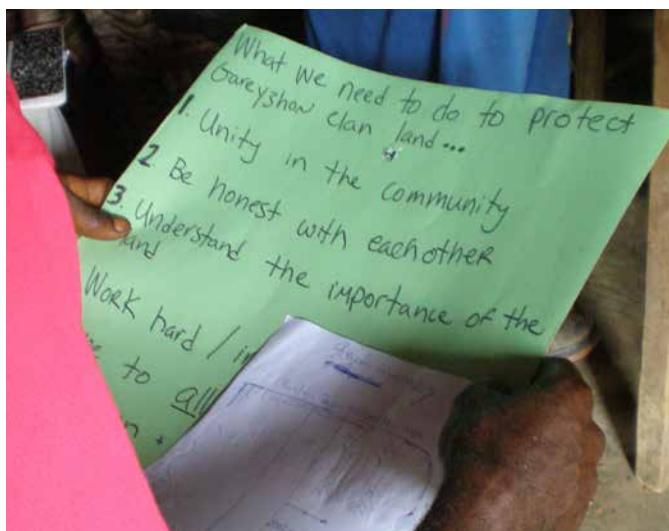 What we need to do to protect
Gareyzhon clan land...
1. Unity in the community
2 Be honest with eachother
3. Understand the importance of the
land
Work hard /
to all